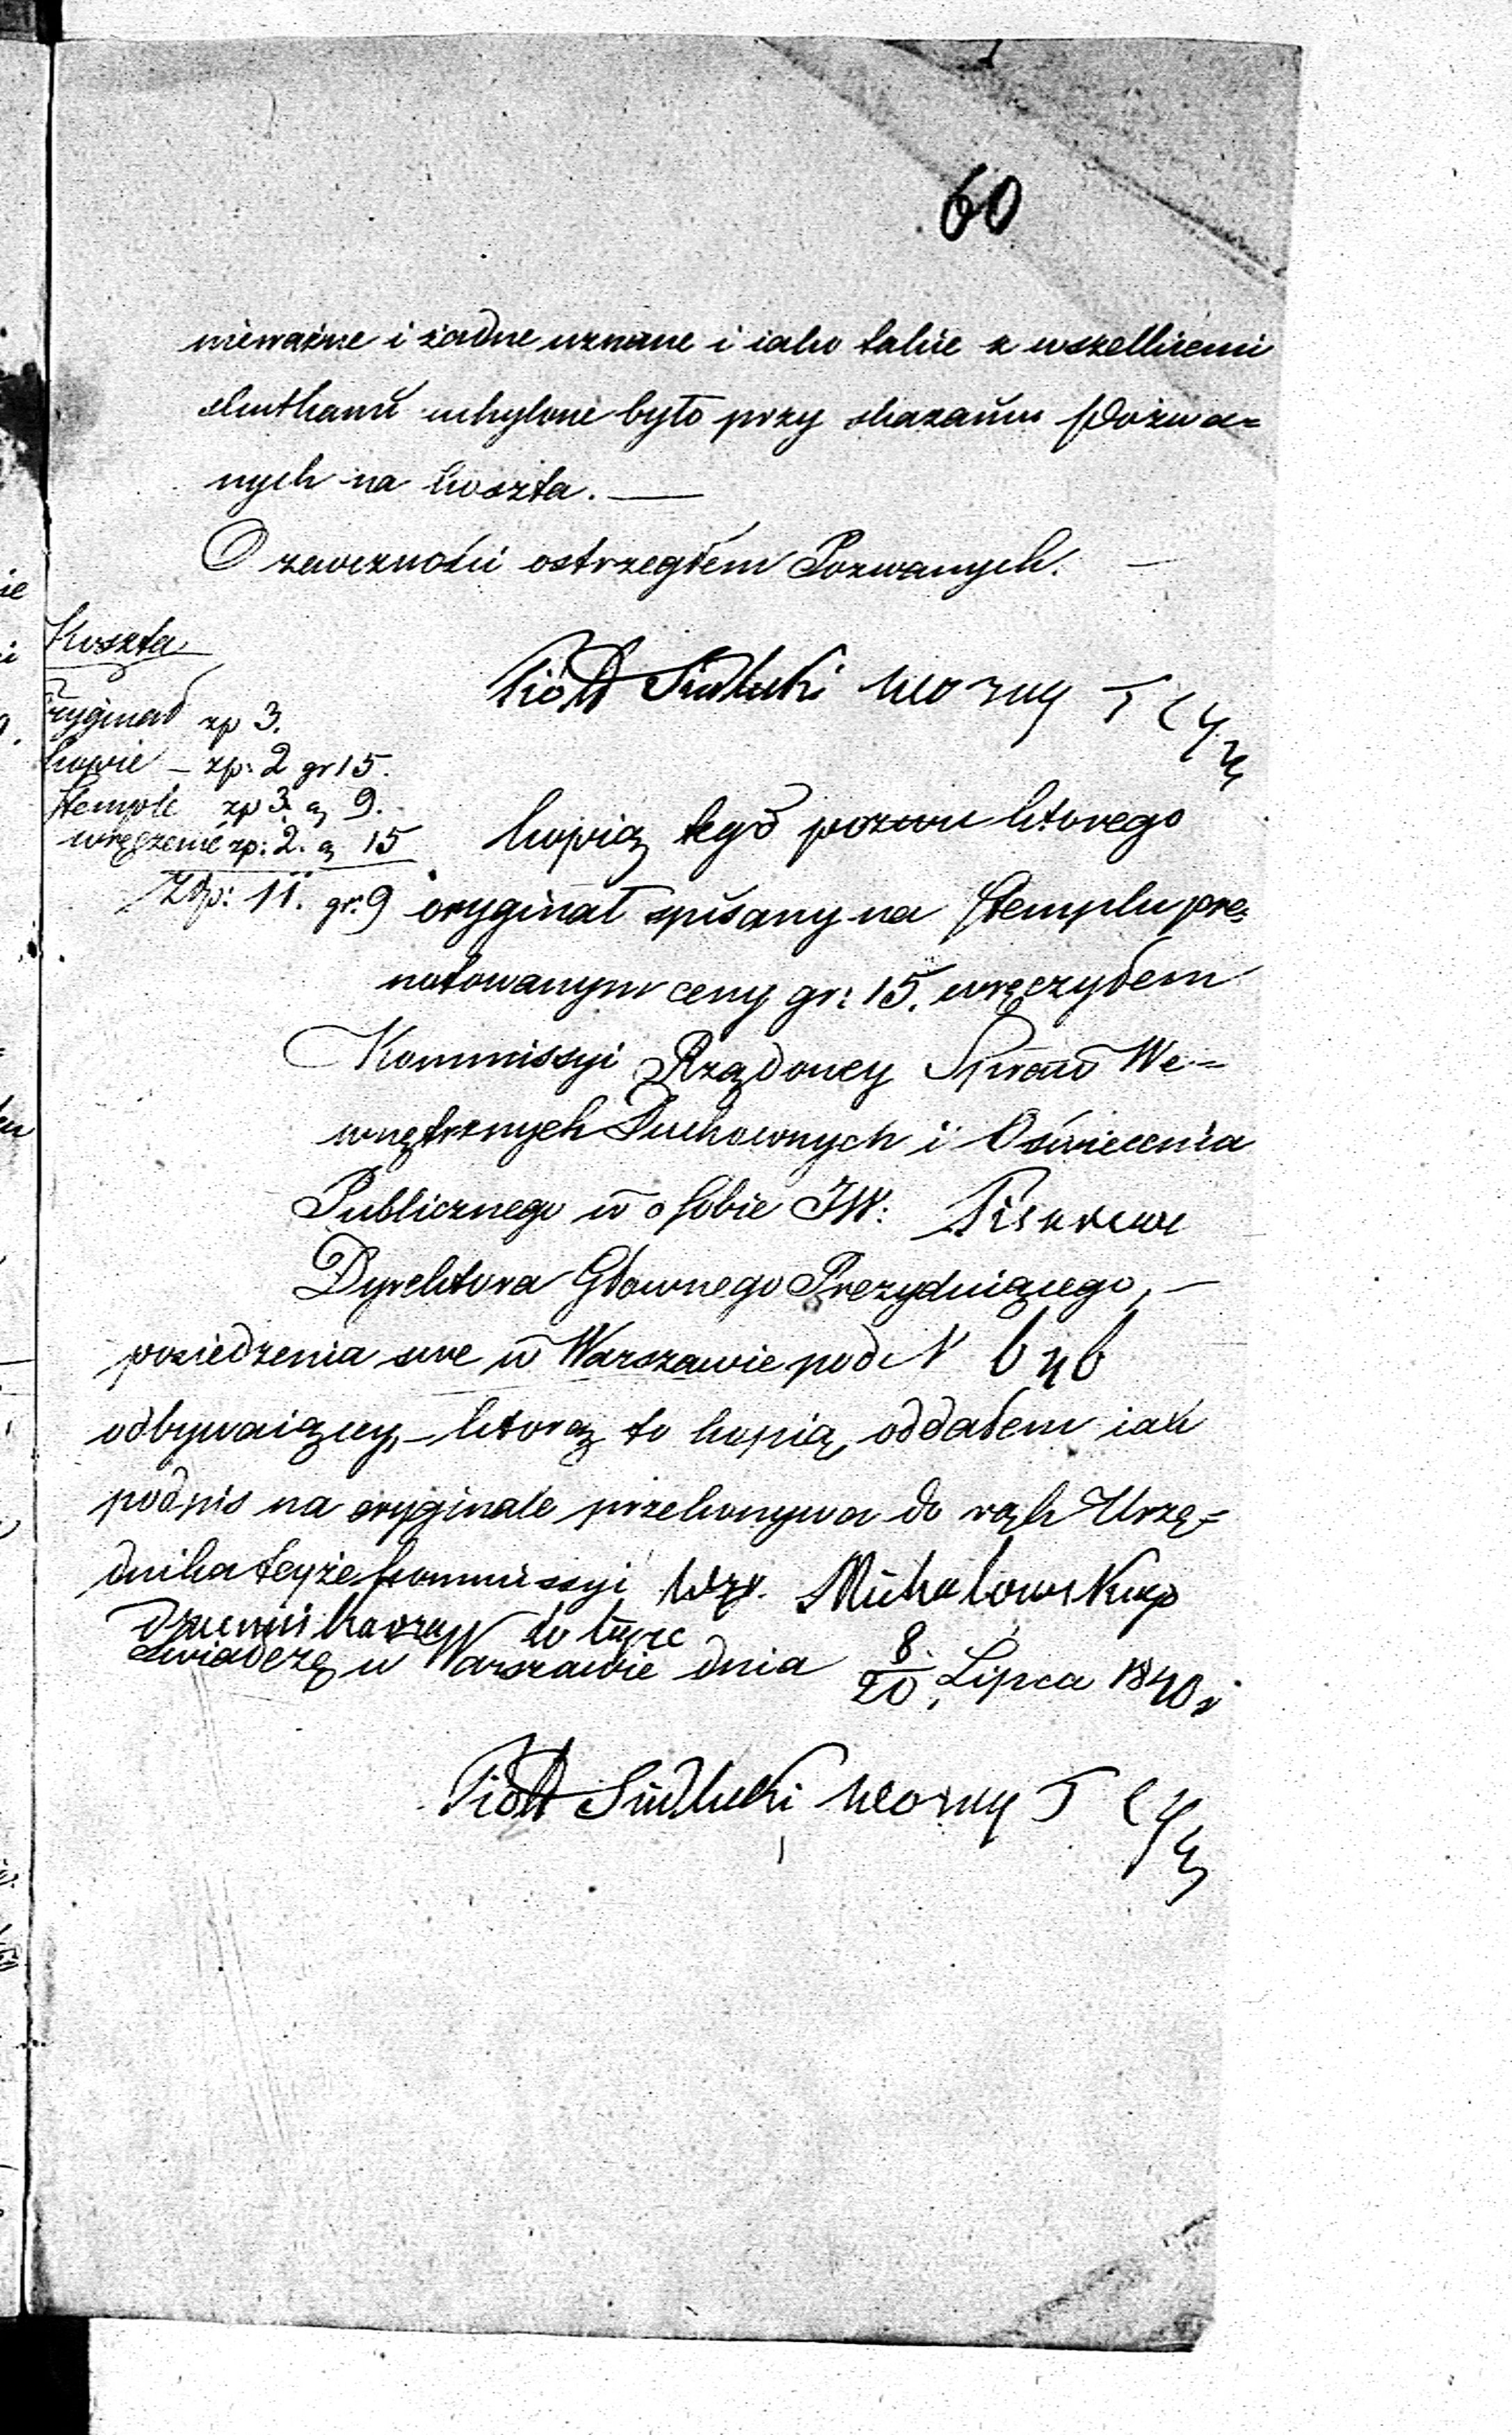 60
nieważne i żadne uznane i iako takie z wszelkiemi
skutkami uchylone było przy skazaniu Pozwa=
nych na koszta. —
O zawczności ostrzegłem Pozwanych. —
Piotr Siedlecki Woźny T C
Koszta
oryginał zp 3.
kopie – zp: 2 gr 15.
stemple zp 3. g 9.
wręczenie zp: 2. g 15
Złp: 11. gr: 9
kopią tegoż pozwu ktorego
oryginał spisany na stemplu pre=
notowanym ceny gr: 15. wręczyłem
Kommissyi Rządowey Spraw We=
wnętrznych Duchownych i Oświecenia
Publicznego w osobie JW:
Dyrektora Głownego Prezyduiącego, —
posiedzenia swe w Warszawie pod N
odbywaiącey, – ktorą to kopią oddałem iak
podpis na oryginale przekonywa do rąk Urzę=
dnika teyże kommissyi Wgo. Michałowskiego
Dziennikarza to tyże
świadczę w Warszawie dnia 8/20 Lipca 1840 r
Piotr Siedlecki Woźny T C